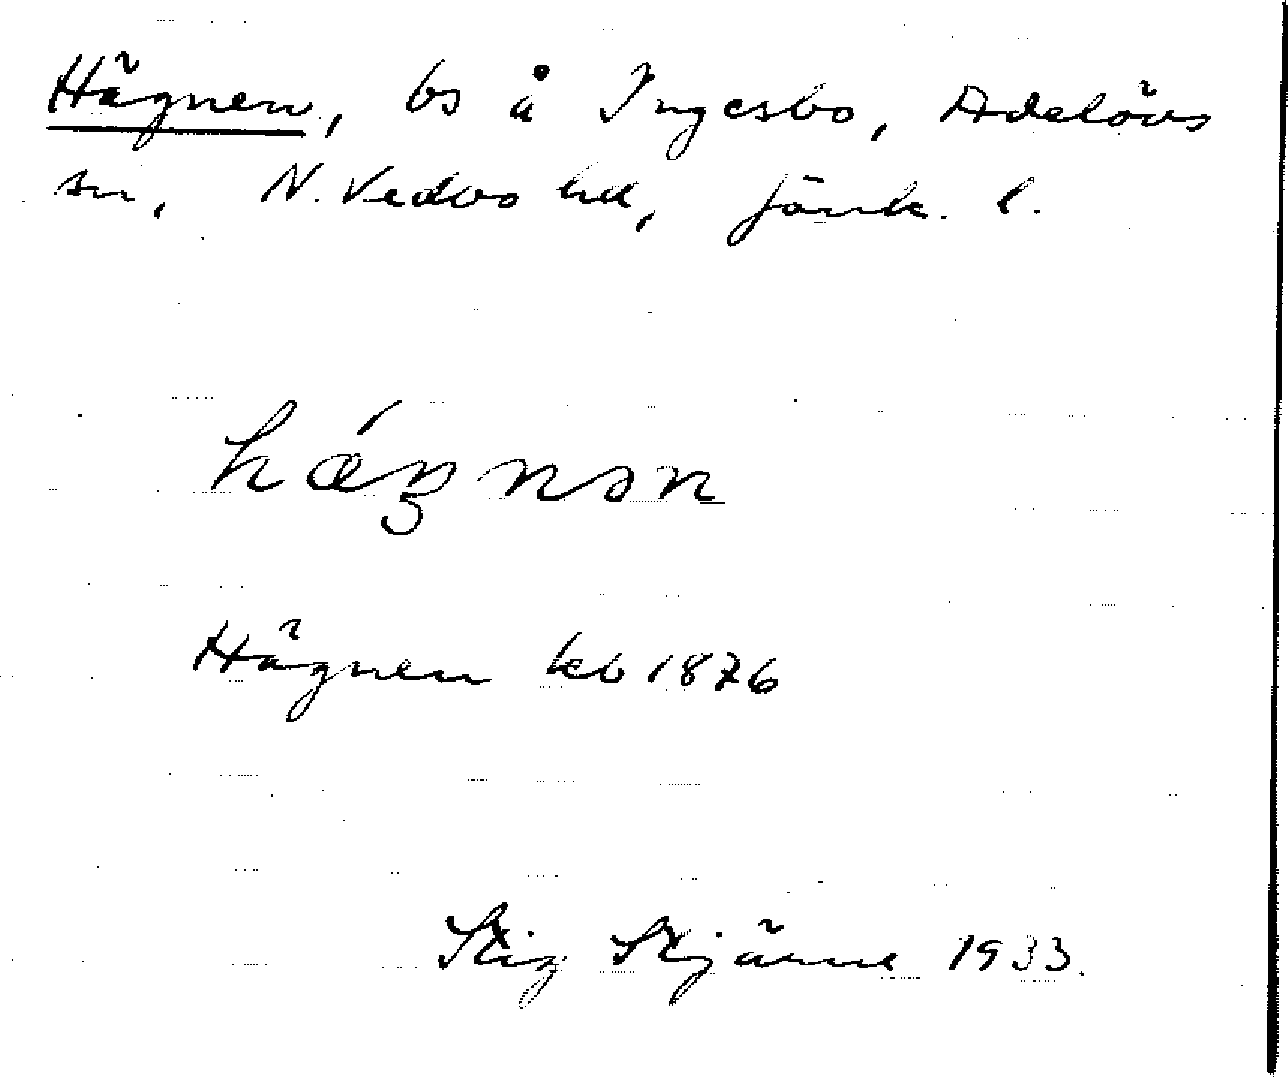 Hägnen, bs å Ingesbo, Adelövs
sn, N. Vedbo hd, Jönk. l.
hǽŋnən
Hägnen kb 1876
Stig Stjärne 1933.